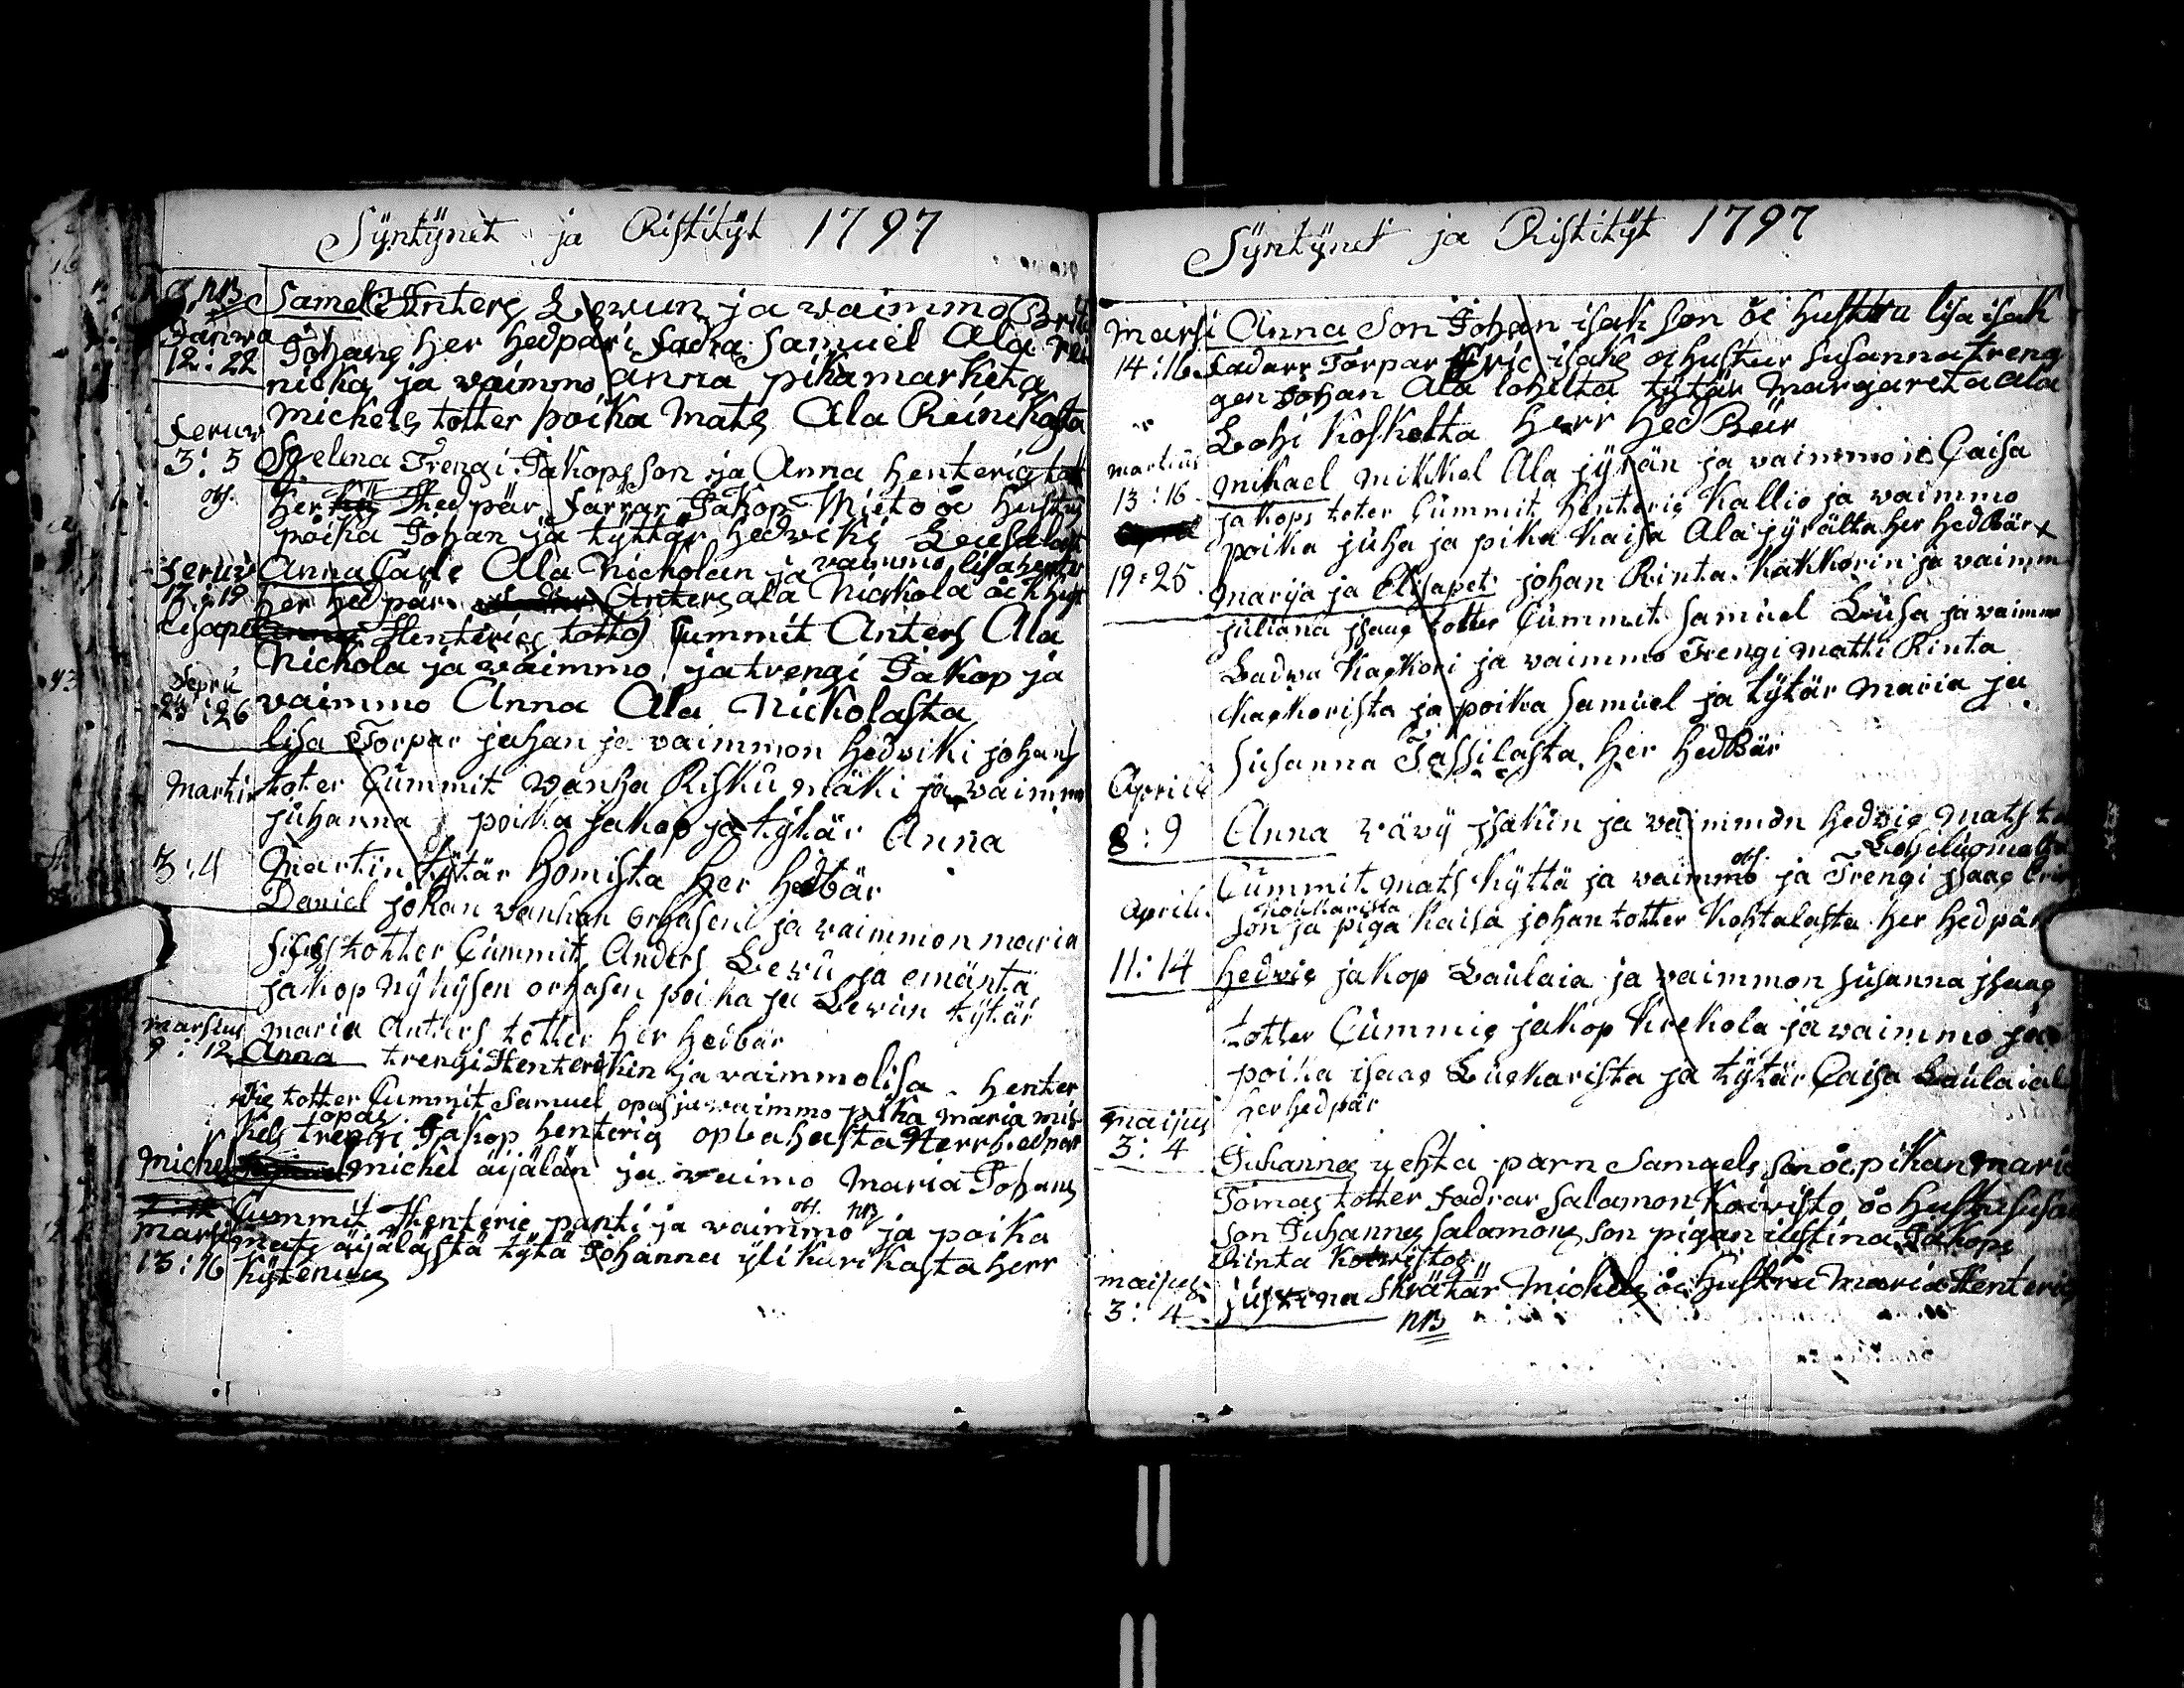 Syntynet ja Ristityt 1797
NB
Samel Anters Lewun ja waimmo Brita
Janwa
12:22
Johans her hedpäri fadra Samuel Ala Rei
nicka ja waimmo anna pika marketa
Michels totter poika Mats Ala Reinikasta
feruw
3:5
Helena Trengi Jakops son ja Anna henterigs tot
her hedpär färrar Jakop Mieto oc hustru
poika Johan ja tyttär hedwiki Leusalast
feruw
17:19
Anna Carle Ala Nickolan ja waimmo lisa henter
her hedpär Anters ala Nickola oc hust
Lisapet
Henterigs totto Cummit Anters Ala
Nickola ja waimmo ja trengi Jakop ja
waimmo Anna Ala Nickolasta
26
lisa Torpar juhan ja waimmon hedwiki johans
Martius
toter Cummit wanha Risku mäki ja waimmo
juhanna poika jakop ja tytär Anna
3:4
Martin tytär homista her hedbär
Daniel johan wanhan orhasen ja waimmon maria
totter Cummit Anders Lewu ja emäntä
jakop nykysen orhasen poika ja Lewun tytär
marsius
9:12
maria Anters totter her hedbär
Anna trengi Henterikin ja waimmo lisa henter
totter Cummit Samuel opas ja waimmo pika maria mic
kels trengi opas Jakop henterig opbahasta Herr hedpär
Michel
michel äijälän ja waimo Maria Johans
Cummit Henteric panti ja waimmo ja poika
marsi
13:16
mats äijälästä tytä Johanna ylikarikasta herr
Kyteniu
Syntynet ja Ristityt 1797
Marsi
14:16
Anna Son Johan isak son oc hustru lisa isak
fadarr Torpar Eric isaks oc hustur susanna treng
gen Johan Ala lohelta tytär Margareta ala
Lohi Koskolta Herr Hed Bär
martius
13:16
mikael mikkel Ala jyrän ja waimmon Caisa
jakops toter Cummit henteric Kallio ja waimmo
poika juha ja pika Kaisa Ala jyrältä her hedbär
19:25
marija ja Elisapet johan Rinta Kakkorin ja waimm
juliana jsaac totter Cummit Samuel Luusa ja waimmo
Ladwa Kackori ja waimmo Trengi matti Rinta
Kackorista ja poika Samuel ja tytär Maria ja
Susanna Tassilasta her hedbär
Aprill
8:9
Anna wävy jsakin ja waimmon hedwic mats t
Cummit mats Kyttä ja waimmo ja Trengi jsaac Eric
Aprili
son ja piga Kaisa johan totter Kohtalasta her hedpär
11:14
hedwic jakop Laulaia ja waimmon susanna jsaac
totter Cummic jakop Krekola ja waimmo ja
poika isaac Luckarista ja tytär Caisa Laulaial
her hedpär
maijus
3:4
Juhannes yehta parn Samuels son oc pikan maria
Tomas totter fadrar Salamon Koiwisto oc hustru susa
son Juhannes Salamons son pigan iustina Jakops
Rinta Koiwisto
maijus
3:4
justina Skrätär Michels oc hustru Maria Henteric
NB